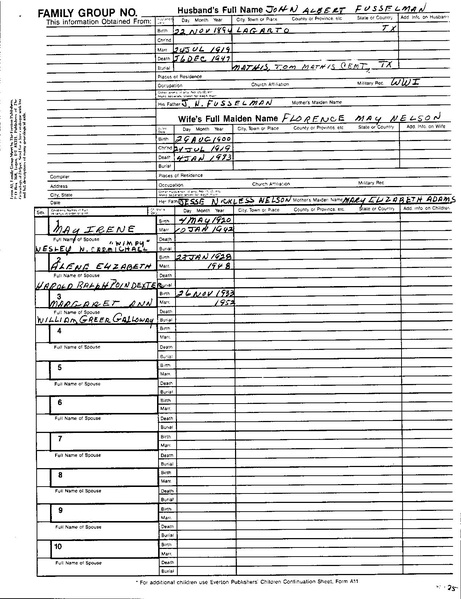 FAMILY GROUP NO.
This Information Obtained From:
Husband's Full Name JOHN ALBERT FUSSELMAN
Day Month Year City, Town or Place County or Province, etc. State or Country Add. Info. on Husband
Birth 22 NOV 1894 LAGARTO TX
Chr'nd
Marr. 24 JUL 1919
Death 26 DEC 1947
Burial MATHIS, TOM MATHIS CEMT, TX
Places of Residence
Occupation Church Affiliation Military Rec. WWI
His Father J. H. FUSSELMAN Mother's Maiden Name
Wife's Full Maiden Name FLORENCE MAY NELSON
Day Month Year City, Town or Place County or Province, etc. State or Country Add. Info. on Wife
Birth 29 AUG 1900
Chr'nd 24 JUL 1919
Death 4 JAN 1973
Burial
Compiler
Places of Residence
Address
Occupation Church Affiliation Military Rec.
City, State
Date
Her Father JESSE NICKLESS NELSON Mother's Maiden Name MARY ELIZABETH ADAMS
Sex
Day Month Year City, Town or Place County or Province, etc. State or Country Add. Info. on Children
1
MAY IRENE
Birth 4 MAY 1920
Full Name of Spouse "WIMPY"
Marr. 10 JAN 1942
WESLEY H. CARMICHALL
Death
Burial
2
ALENE ELIZABETH
Birth 23 JAN 1928
Full Name of Spouse
Marr. 1948
HAROLD RALPH POINDEXTER
Death
Burial
3
MARGARET ANN
Birth 26 NOV 1933
Full Name of Spouse
Marr. 1952
WILLIAM GREER GALLOWAY
Death
Burial
4
Birth
Marr.
Full Name of Spouse
Death
Burial
5
Birth
Marr.
Full Name of Spouse
Death
Burial
6
Birth
Marr.
Full Name of Spouse
Death
Burial
7
Birth
Marr.
Full Name of Spouse
Death
Burial
8
Birth
Marr.
Full Name of Spouse
Death
Burial
9
Birth
Marr.
Full Name of Spouse
Death
Burial
10
Birth
Marr.
Full Name of Spouse
Death
Burial
* For additional children use Everton Publishers' Children Continuation Sheet, Form A11
25